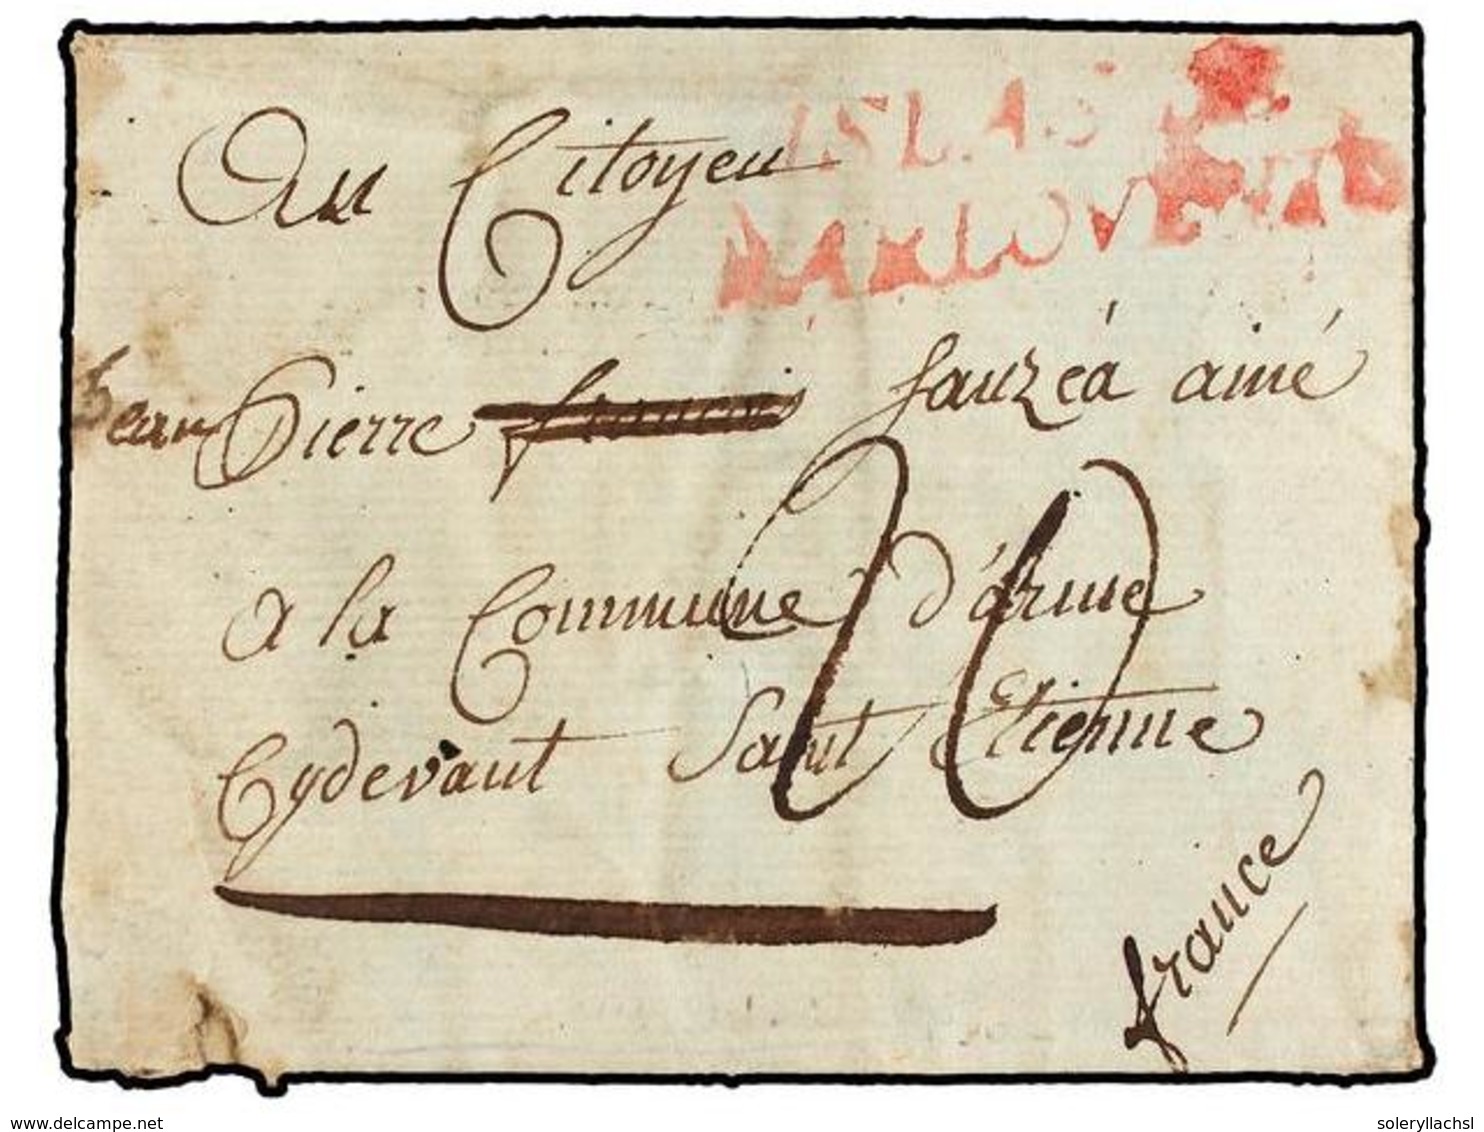 ISLAS DE
BARLOVENTO
Au Citoyen
Jean Pierre francois fauzéa ainé
a la Commune d'arme
Cydevant Saint Etienne
france
delcampe.net
soleryllachsl